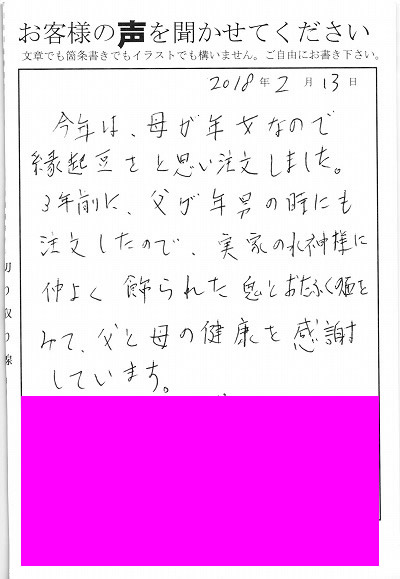 お客様の声を聞かせてください
文章でも箇条書きでもイラストでも構いません。ご自由にお書き下さい。
2018年2月13日
今年は、母が年女なので
縁起豆をと思い注文しました。
3年前に、父が年男の時にも
注文したので、実家の水神様に
仲よく飾られた鬼とおたふく面を
みて、父と母の健康を感謝
しています。
切り取り線